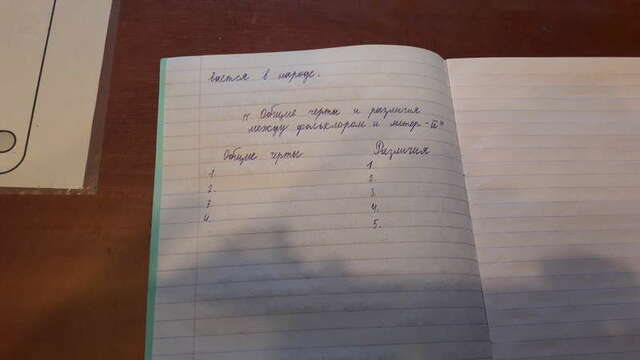 вается в народе.
„ Общие черты и различия
между фольклором и литер-ой"
Общие черты Различия
1 1.
2. 2.
3. 3.
4. 4.
5.